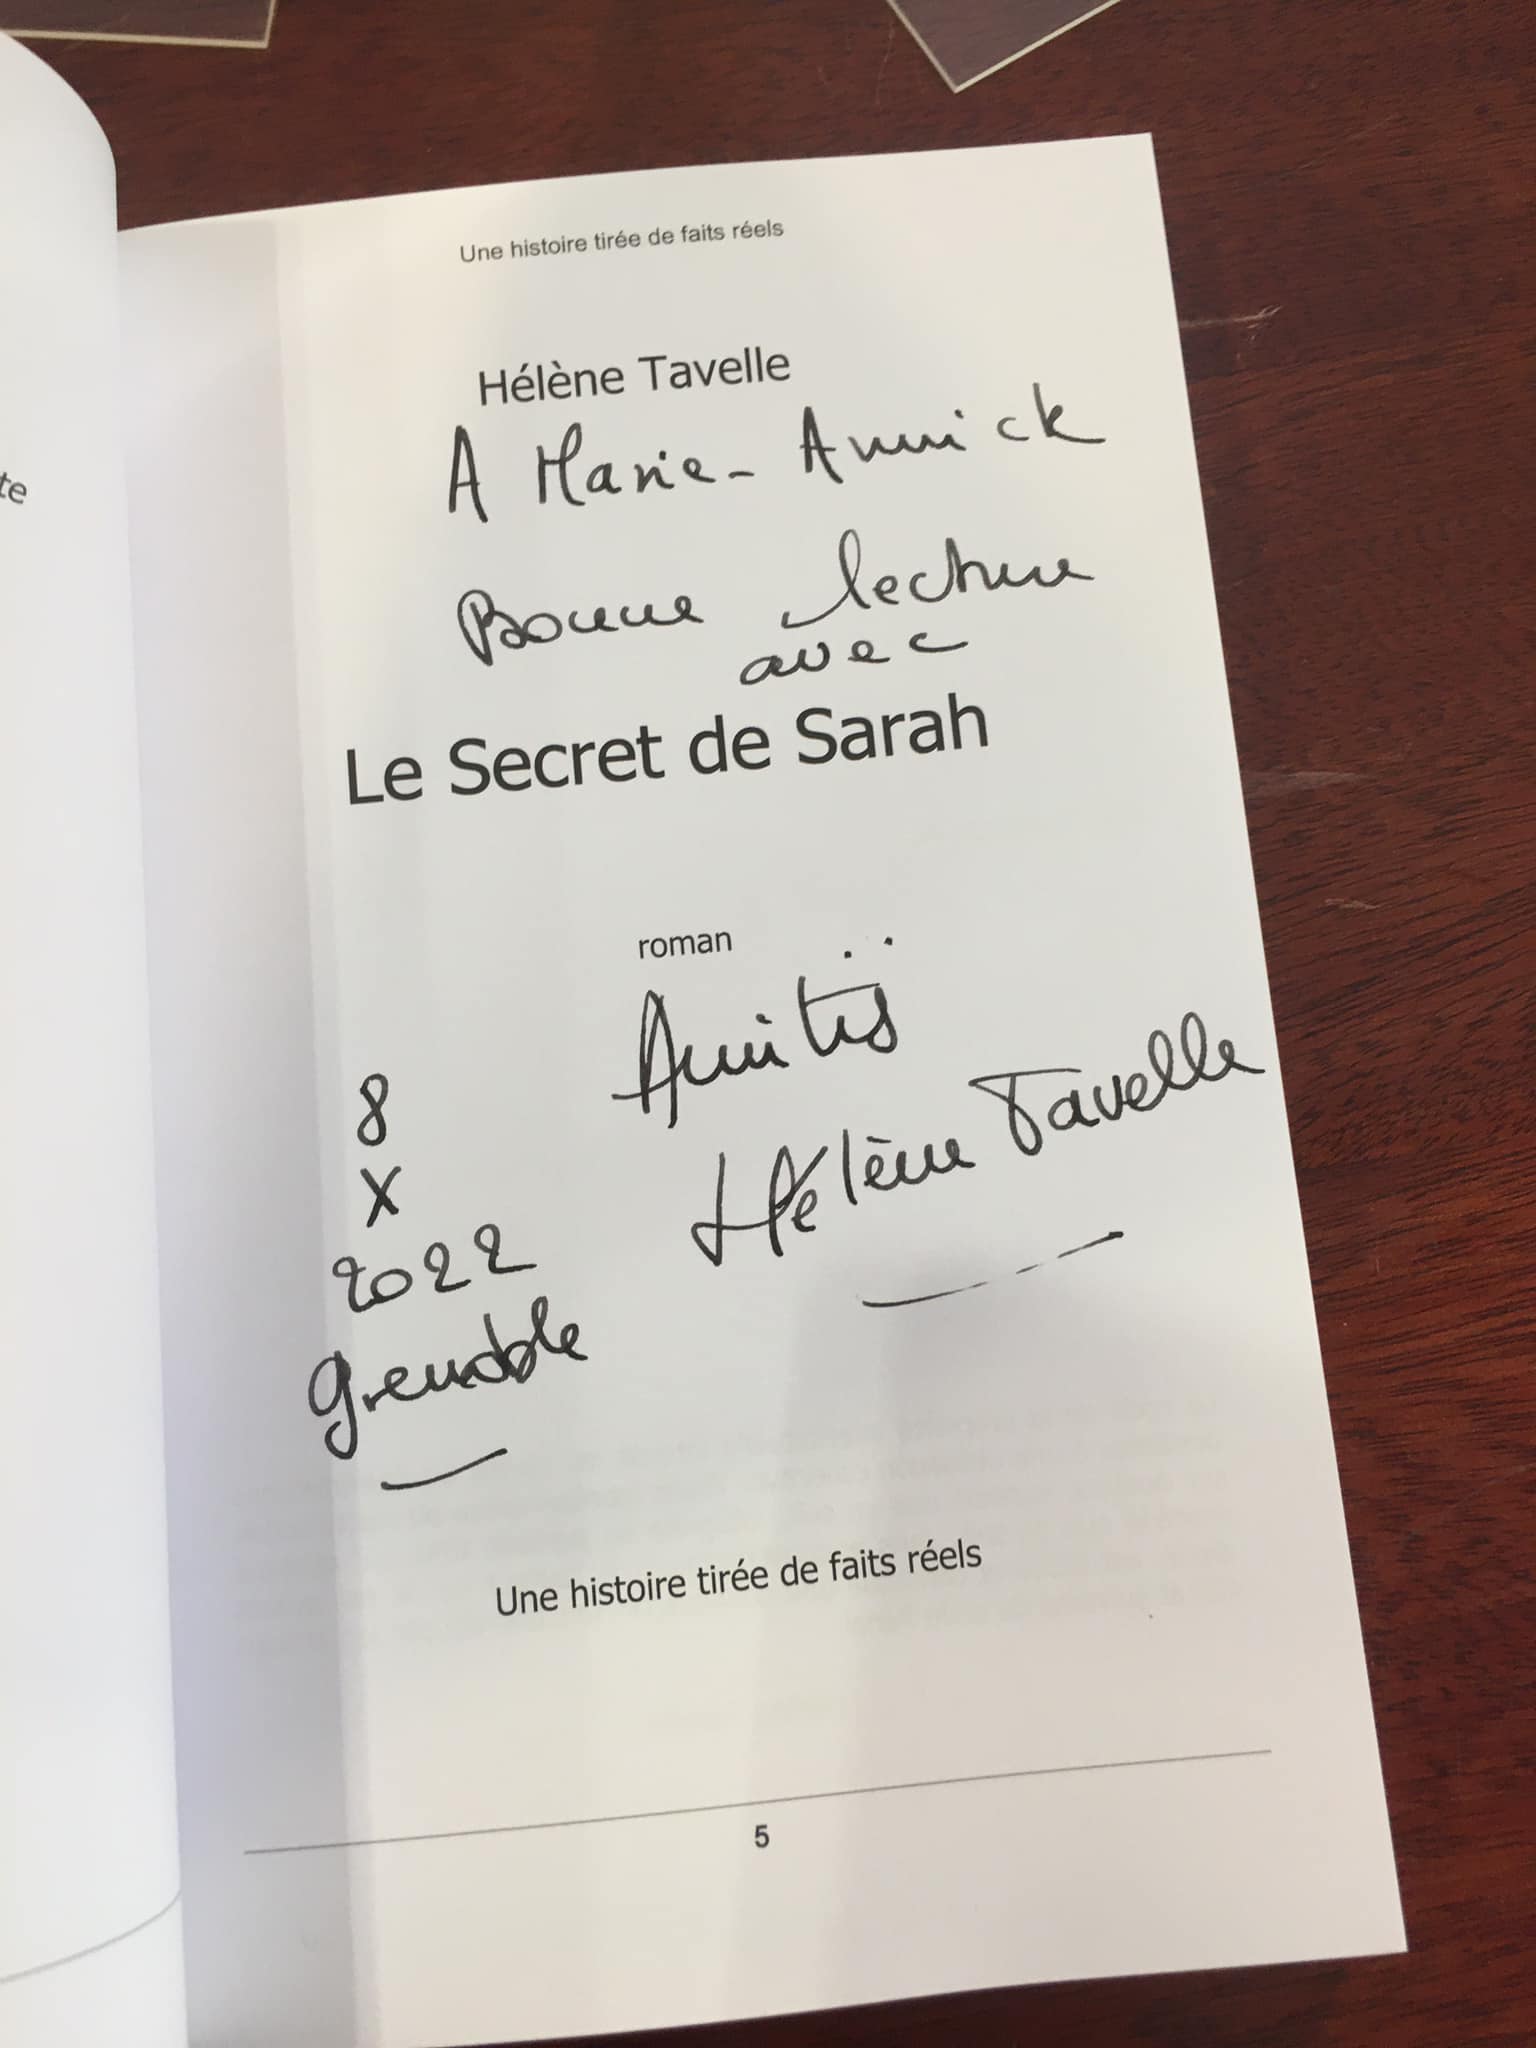 te
Une histoire tirée de faits réels
Hélène Tavelle
A Marie-Annick
Bonne lecture
avec
Le Secret de Sarah
roman
Amitiés
Hélène Tavelle
8
X
2022
Grenoble
Une histoire tirée de faits réels
5